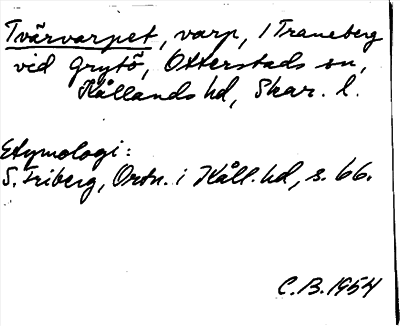 Tvärvarpet, varp, 1 Traneberg
vid Grytö, Otterstads sn,
Kållands hd, Skar. l.
Etymologi:
S. Friberg, Ortn. i Kåll. hd, s. 66.
C.B. 1954